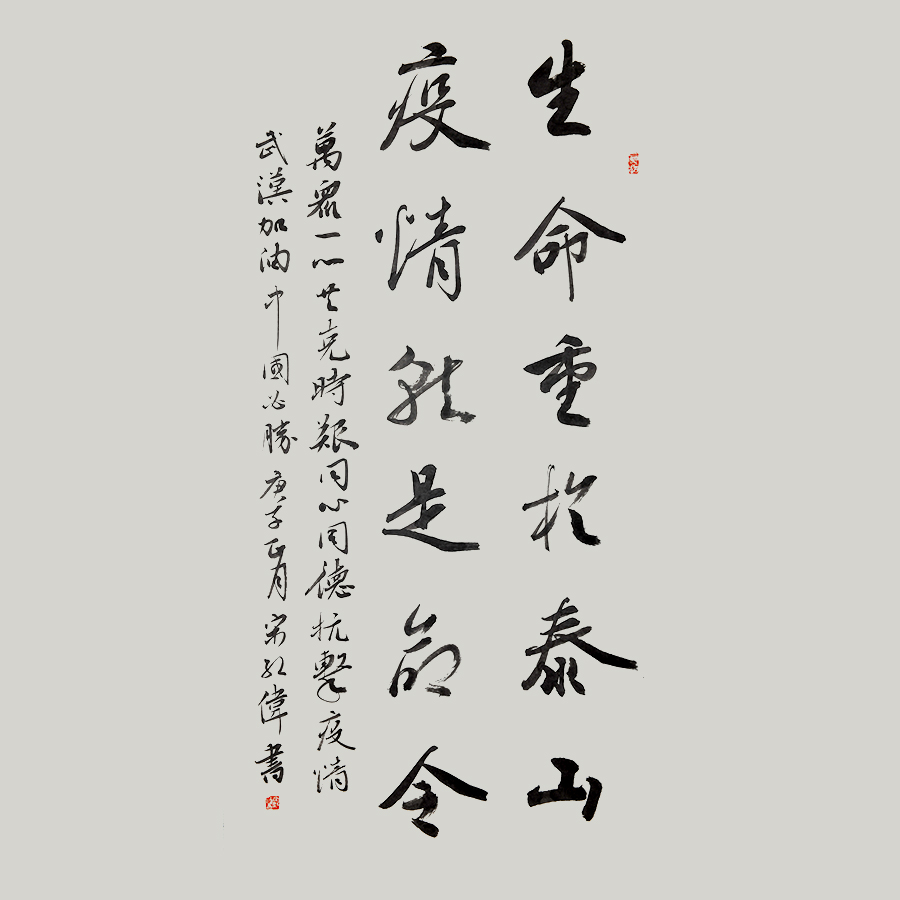 生命重於泰山
疫情就是命令
萬眾一心共克時艱同心同德抗擊疫情
武漢加油中國必勝庚子正月宋紅偉書